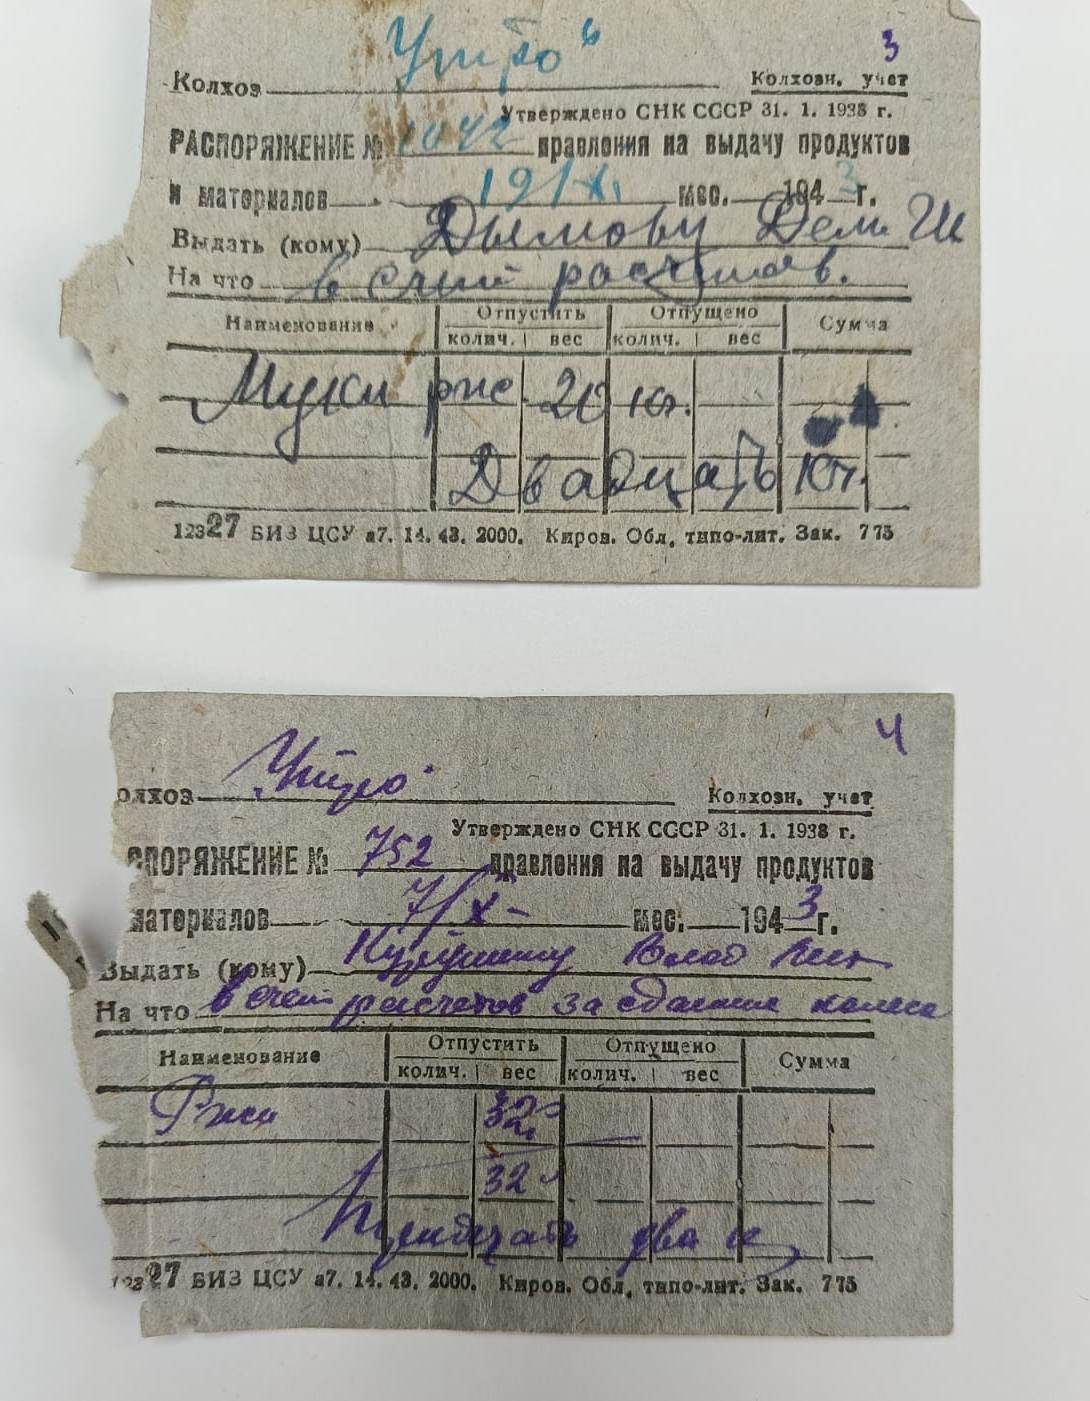 3
Колхоз „Утро“ Колхозн. учет
Утверждено СНК СССР 31. 1. 1938 г.
РАСПОРЯЖЕНИЕ № 1042 правления на выдачу продуктов
и материалов 19/X. мес. 1943 г.
Выдать (кому) Дымову
На что в счет
Наименование Отпустить Отпущено Сумма
колич. вес колич. вес
Муки рже. 20 кг.
Двадцать кг.
12327 БИЗ ЦСУ а7. 14. 43. 2000. Киров. Обл, типо-лит. Зак. 775
4
олхоз „Утро“ Колхозн. учет
Утверждено СНК СССР 31. 1. 1938 г.
СПОРЯЖЕНИЕ № 752 правления на выдачу продуктов
материалов 7/X- мес. 1943 г.
Выдать (кому) Влад
На что в счет расчетов за сдание
Наименование Отпустить Отпущено Сумма
колич. вес колич. вес
Ржи 32
32
Тридцать два к
12327 БИЗ ЦСУ а7. 14. 43. 2000. Киров. Обл, типо-лит. Зак. 775